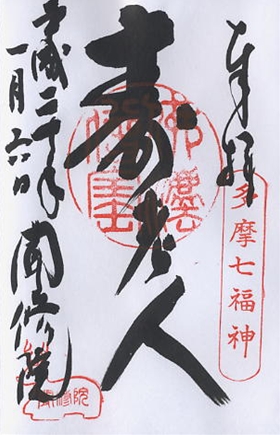 奉拝
多摩七福神
寿老人
平成二十年
一月六日
聞修院
聞修院